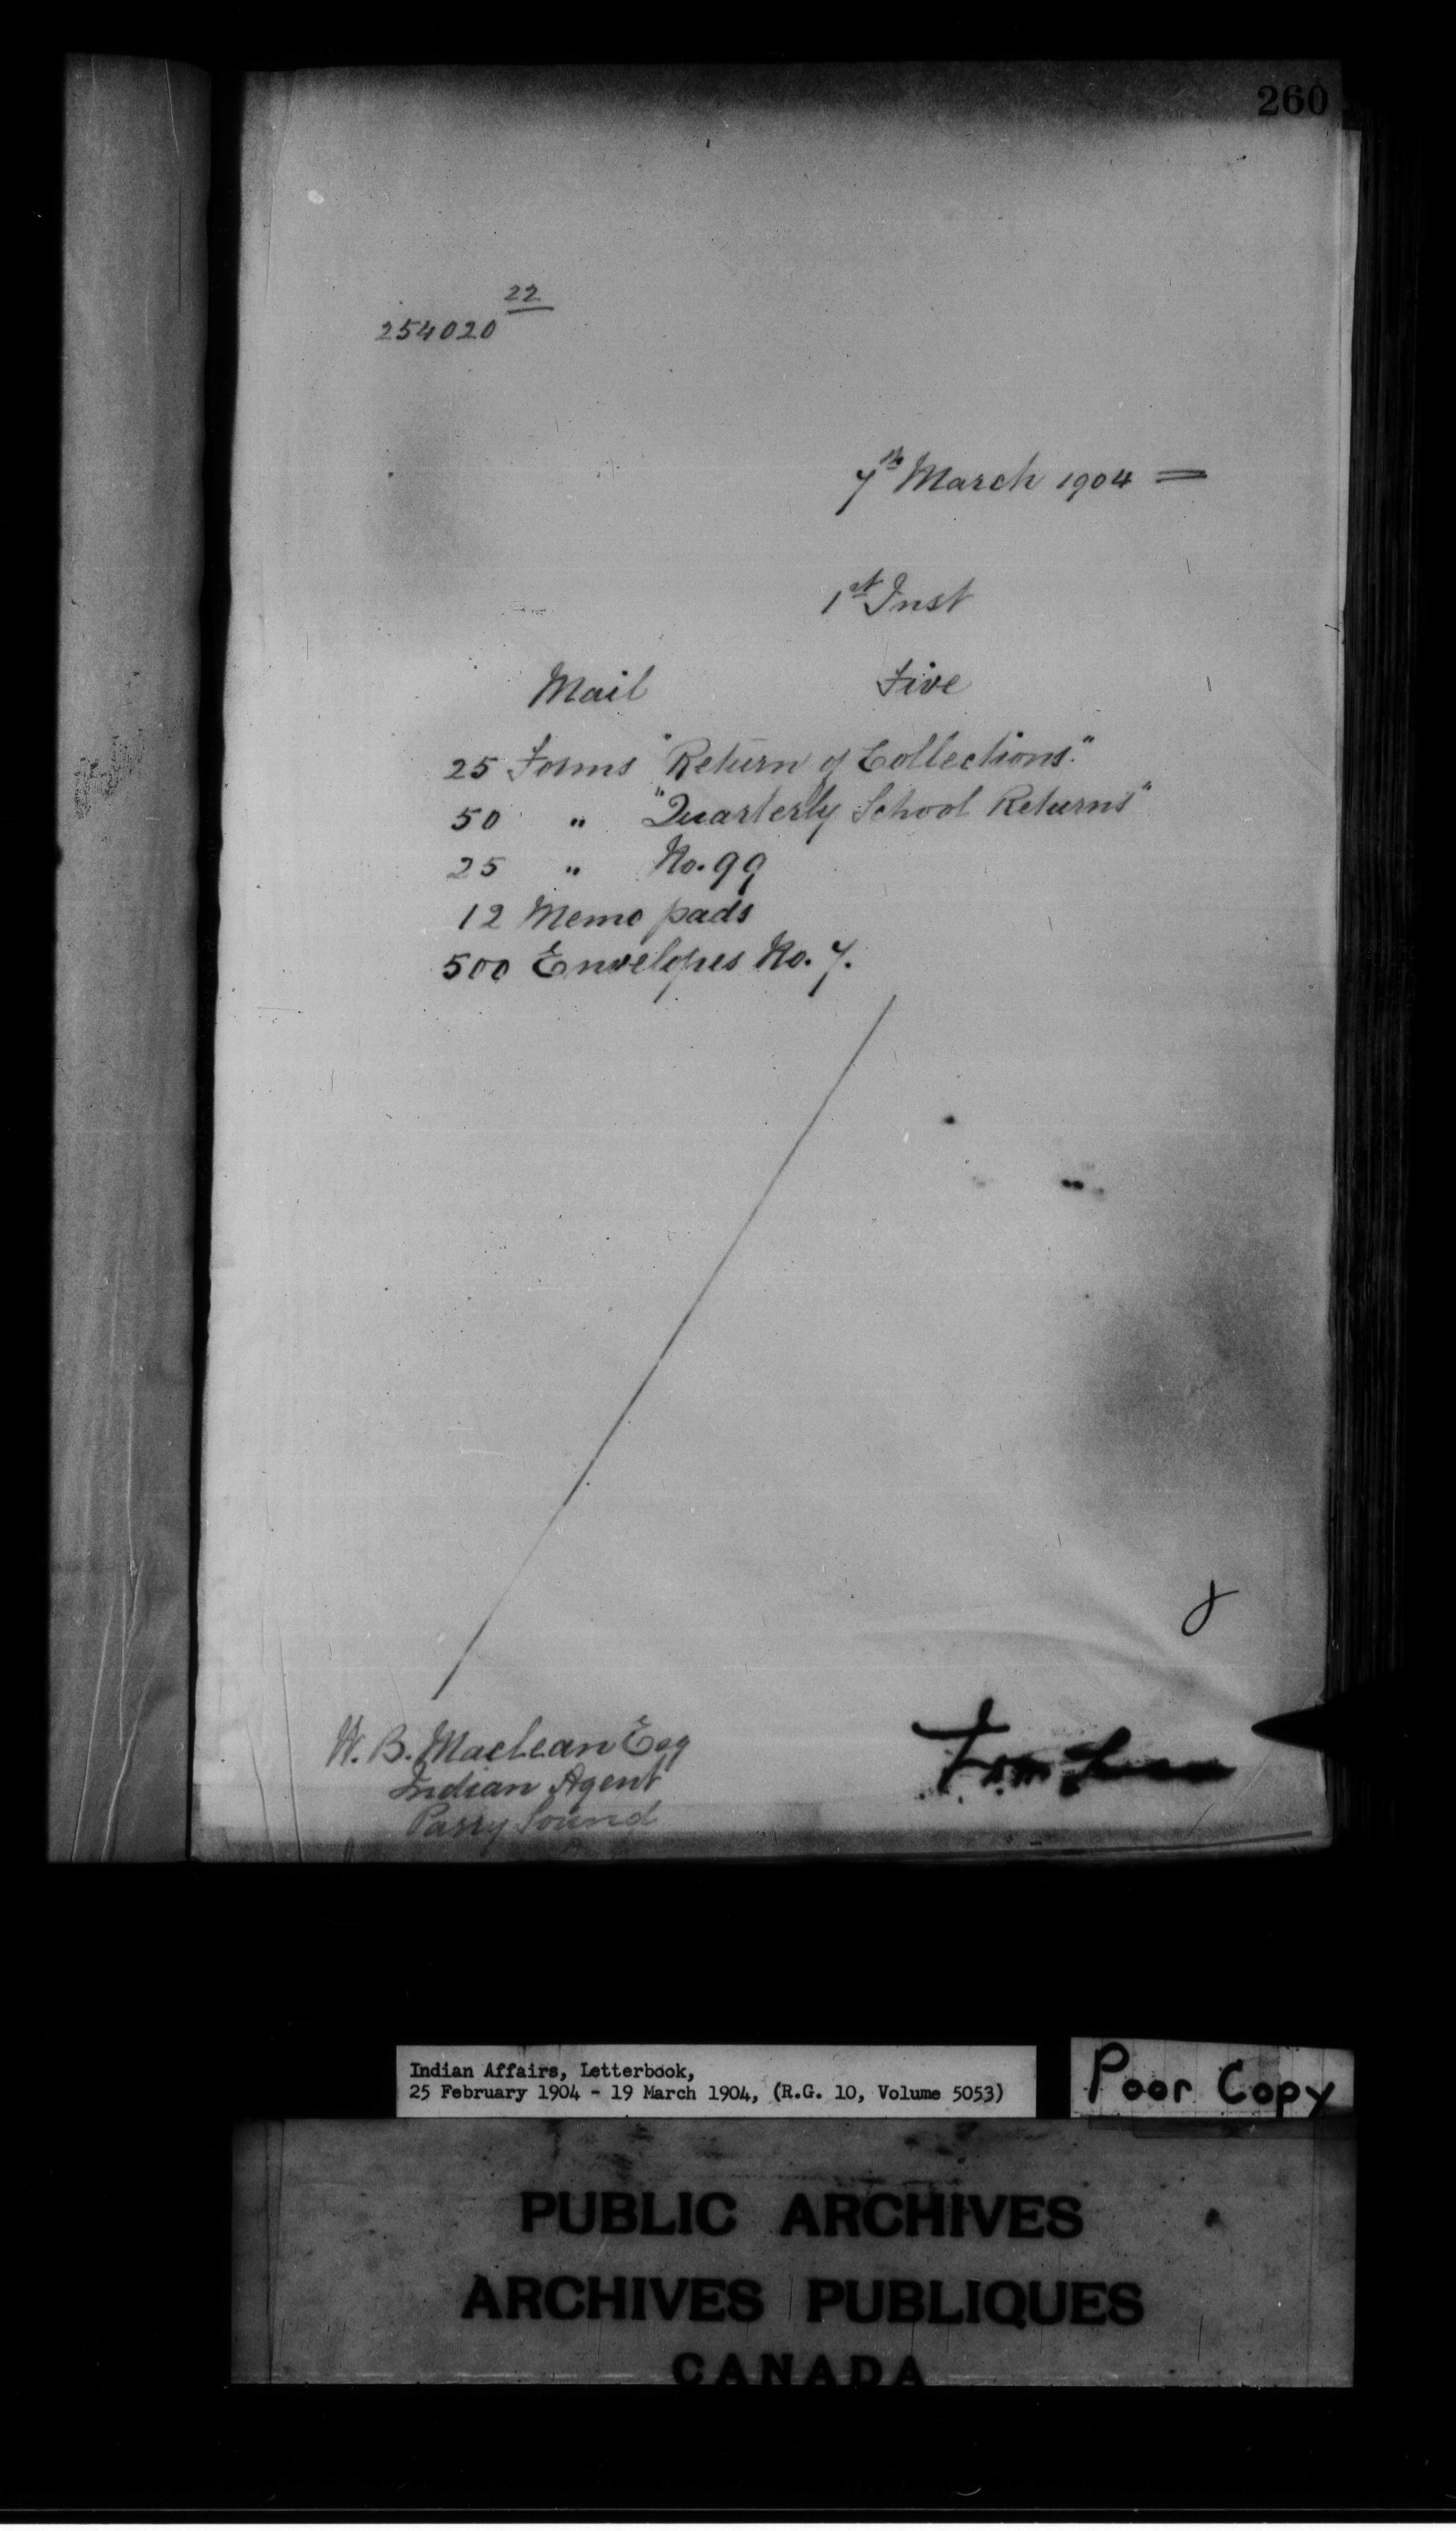 260
22
254020
7th March 1904 =
1st Inst
Mail Five
25 Forms "Return of Collections."
50 " "Quarterly School Returns"
25 " No. 99
12 Memo pads
500 Envelopes No. 7.
W. B. Maclean Esq
Indian Agent
Parry Sound
Indian Affairs, Letterbook,
25 February 1904 - 19 March 1904, (R.G. 10, Volume 5053)
Poor Copy
PUBLIC ARCHIVES
ARCHIVES PUBLIQUES
CANADA